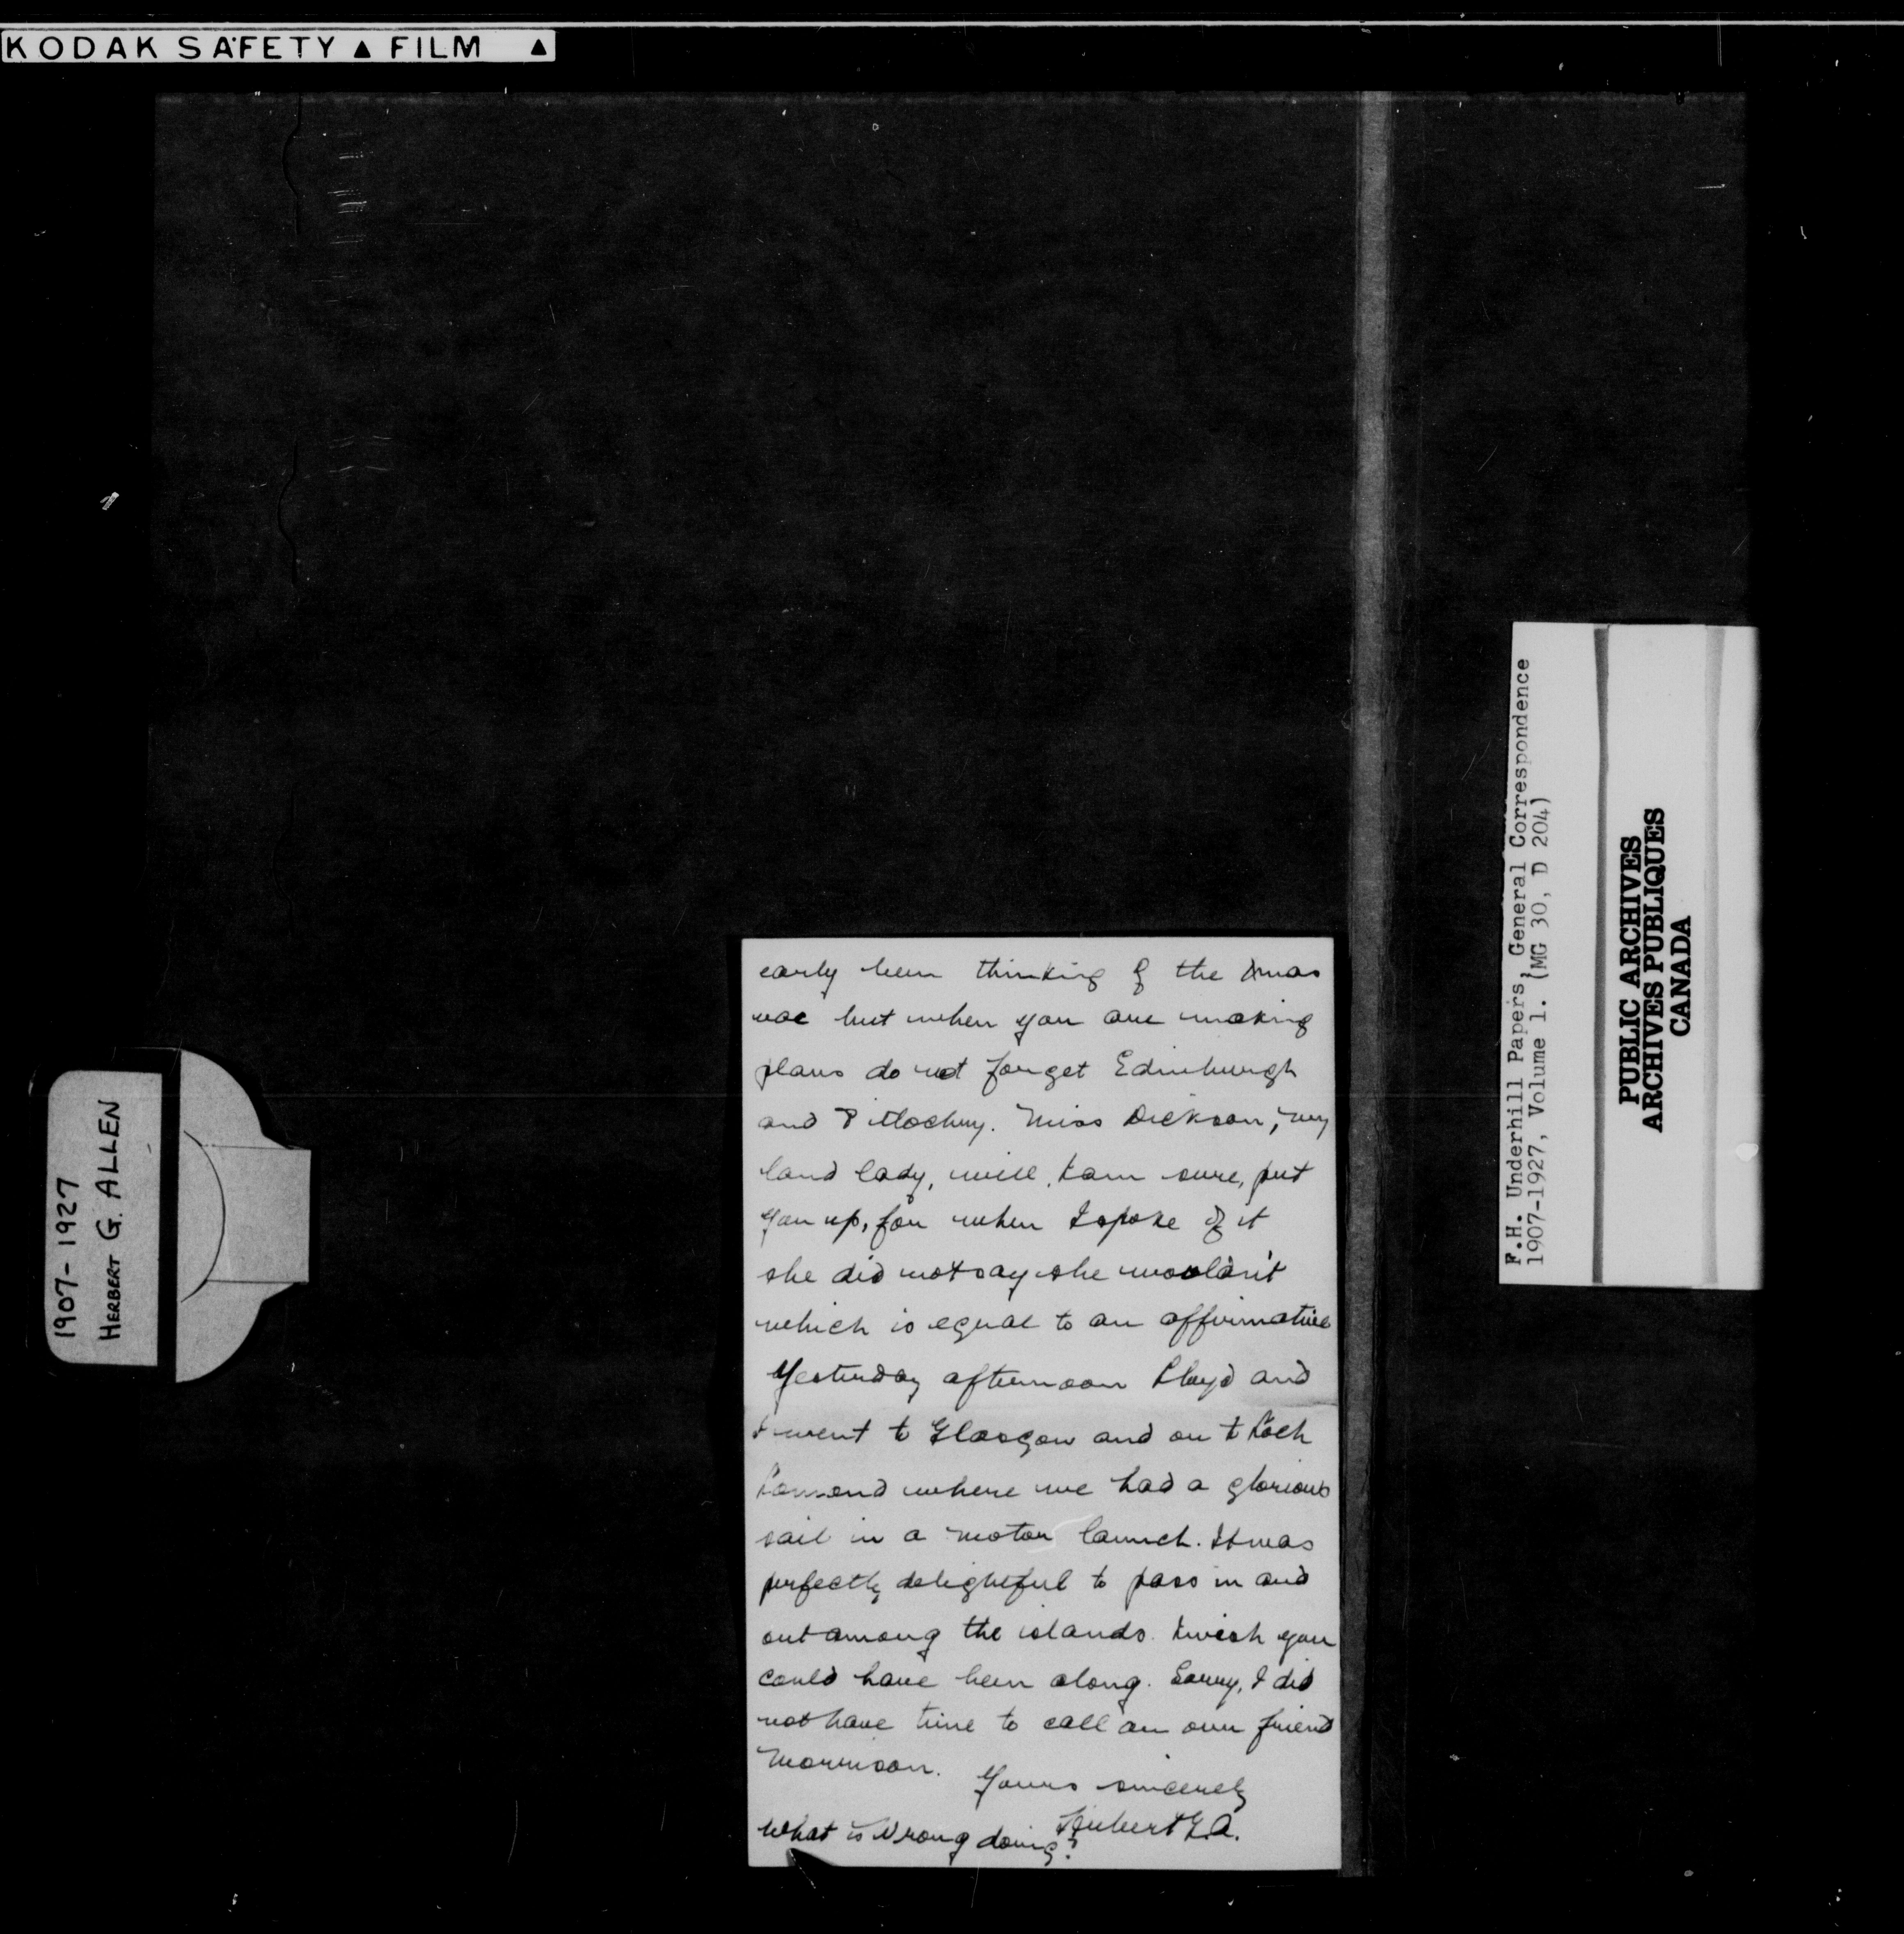 KODAK SAFETY ▲ FILM ▲
early been thinking of the Xmas
vac but when you are making
plans do not forget Edinburgh
and Pitlochry. Miss Dickson, my
land lady, will, I am sure, put
you up, for when I spoke of it
she did not say she wouldn't
which is equal to an affirmative
Yesterday afternoon Lloyd and
I went to Glasgow and on to Loch
Lomond where we had a glorious
sail in a motor launch. It was
perfectly delightful to pass in and
out among the islands. I wish you
could have been along. Sorry, I did
not have time to call on our friend
Morrison.
Yours sincerely
Herbert G.A.
What is Wrong doing?
1907-1927
HERBERT G. ALLEN
F.H. Underhill Papers, General Correspondence
1907-1927, Volume 1. (MG 30, D 204)
PUBLIC ARCHIVES
ARCHIVES PUBLIQUES
CANADA